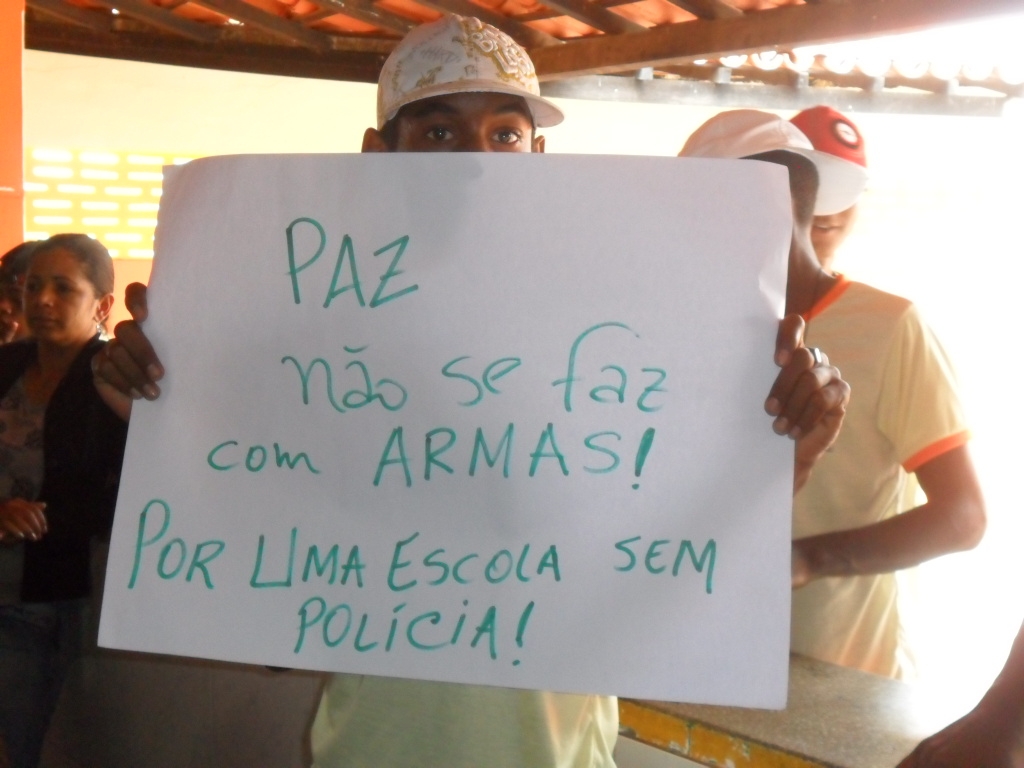 PAZ
não se faz
com ARMAS!
POR UMA ESCOLA SEM
POLÍCIA!